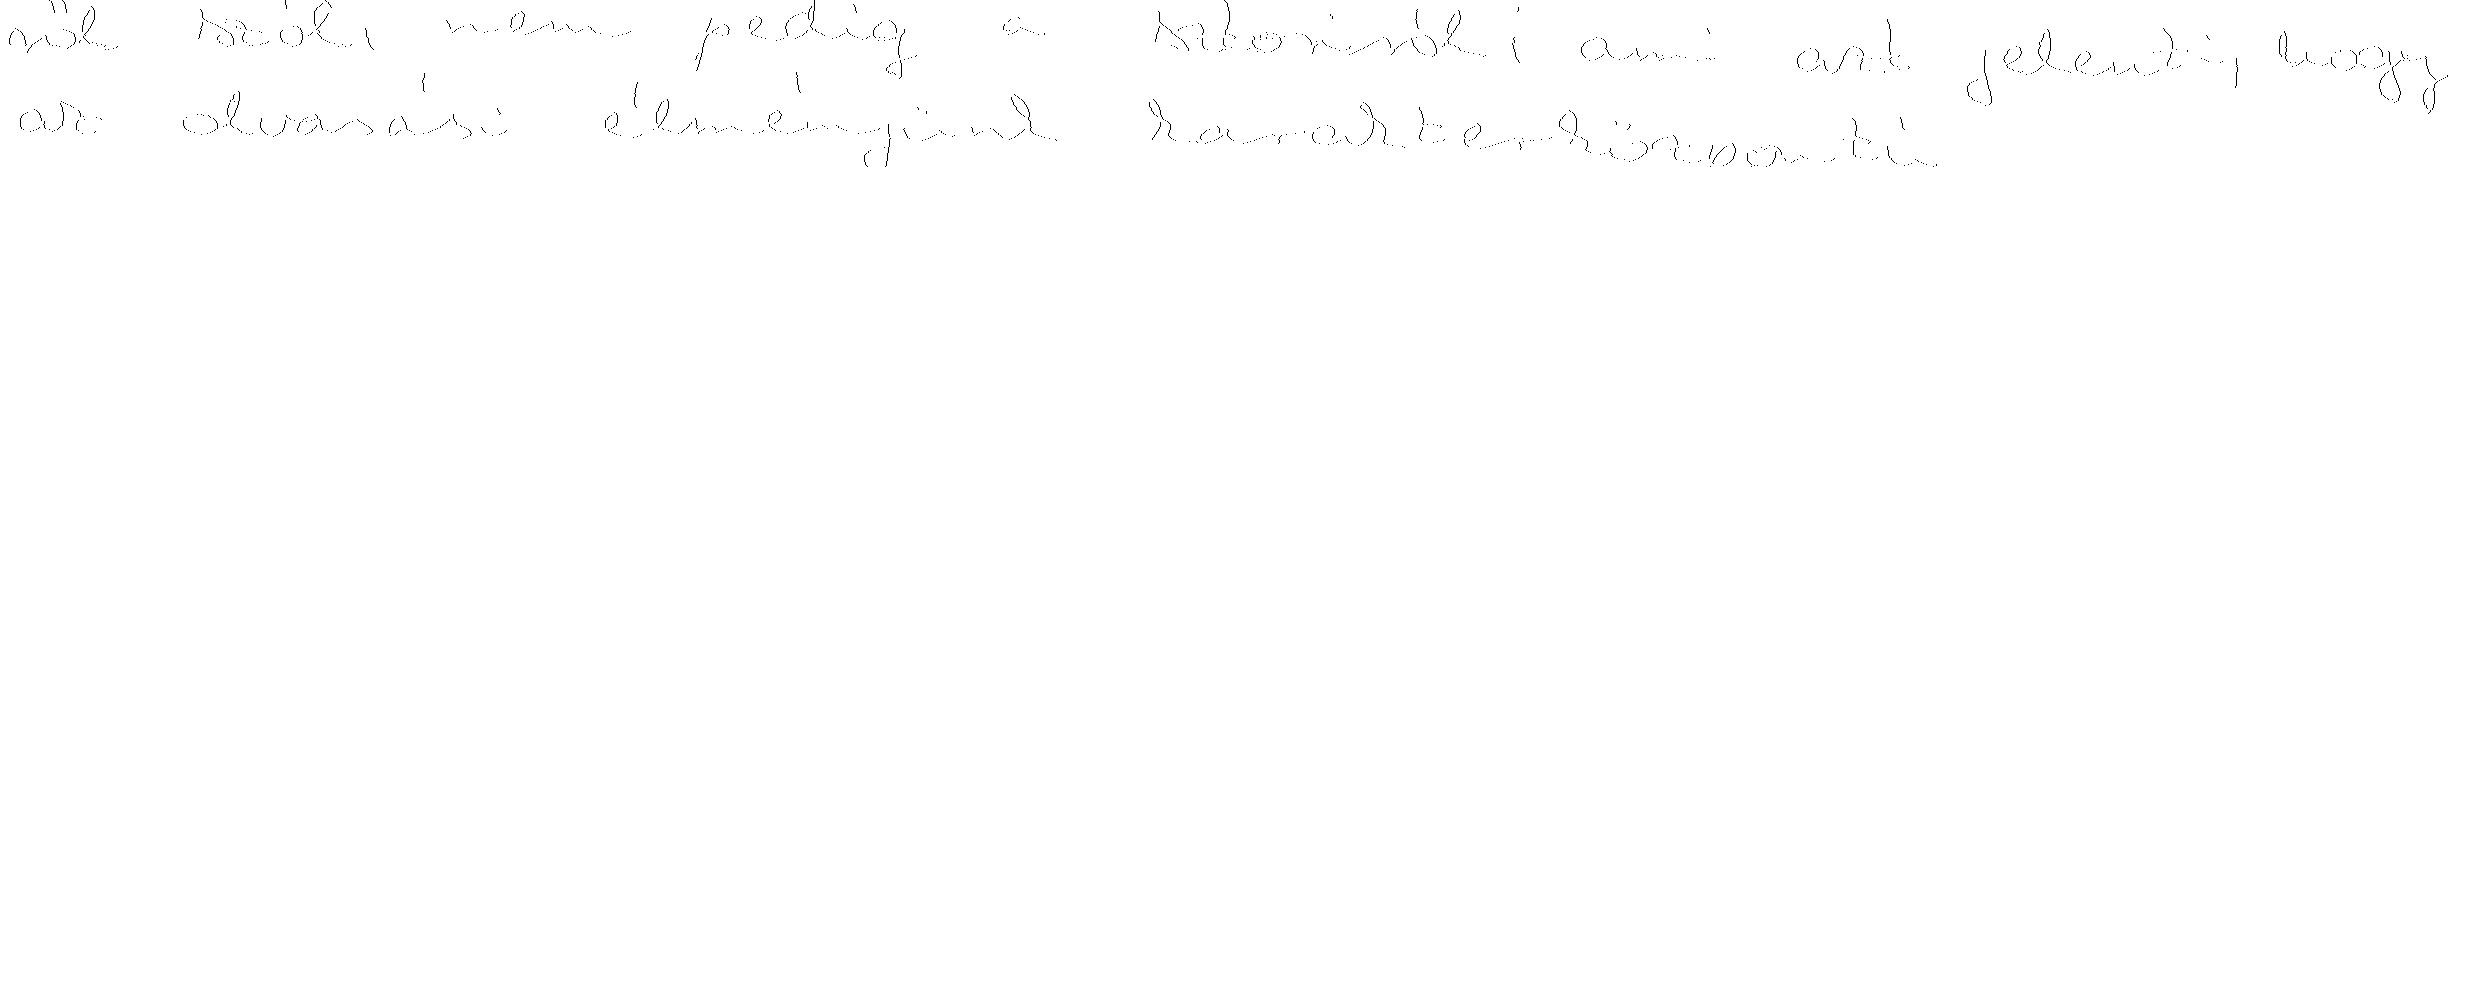 ről szól, nem pedig a sztoriról, ami azt jelenti, hogy
az olvasási élményünk karakterközpontú